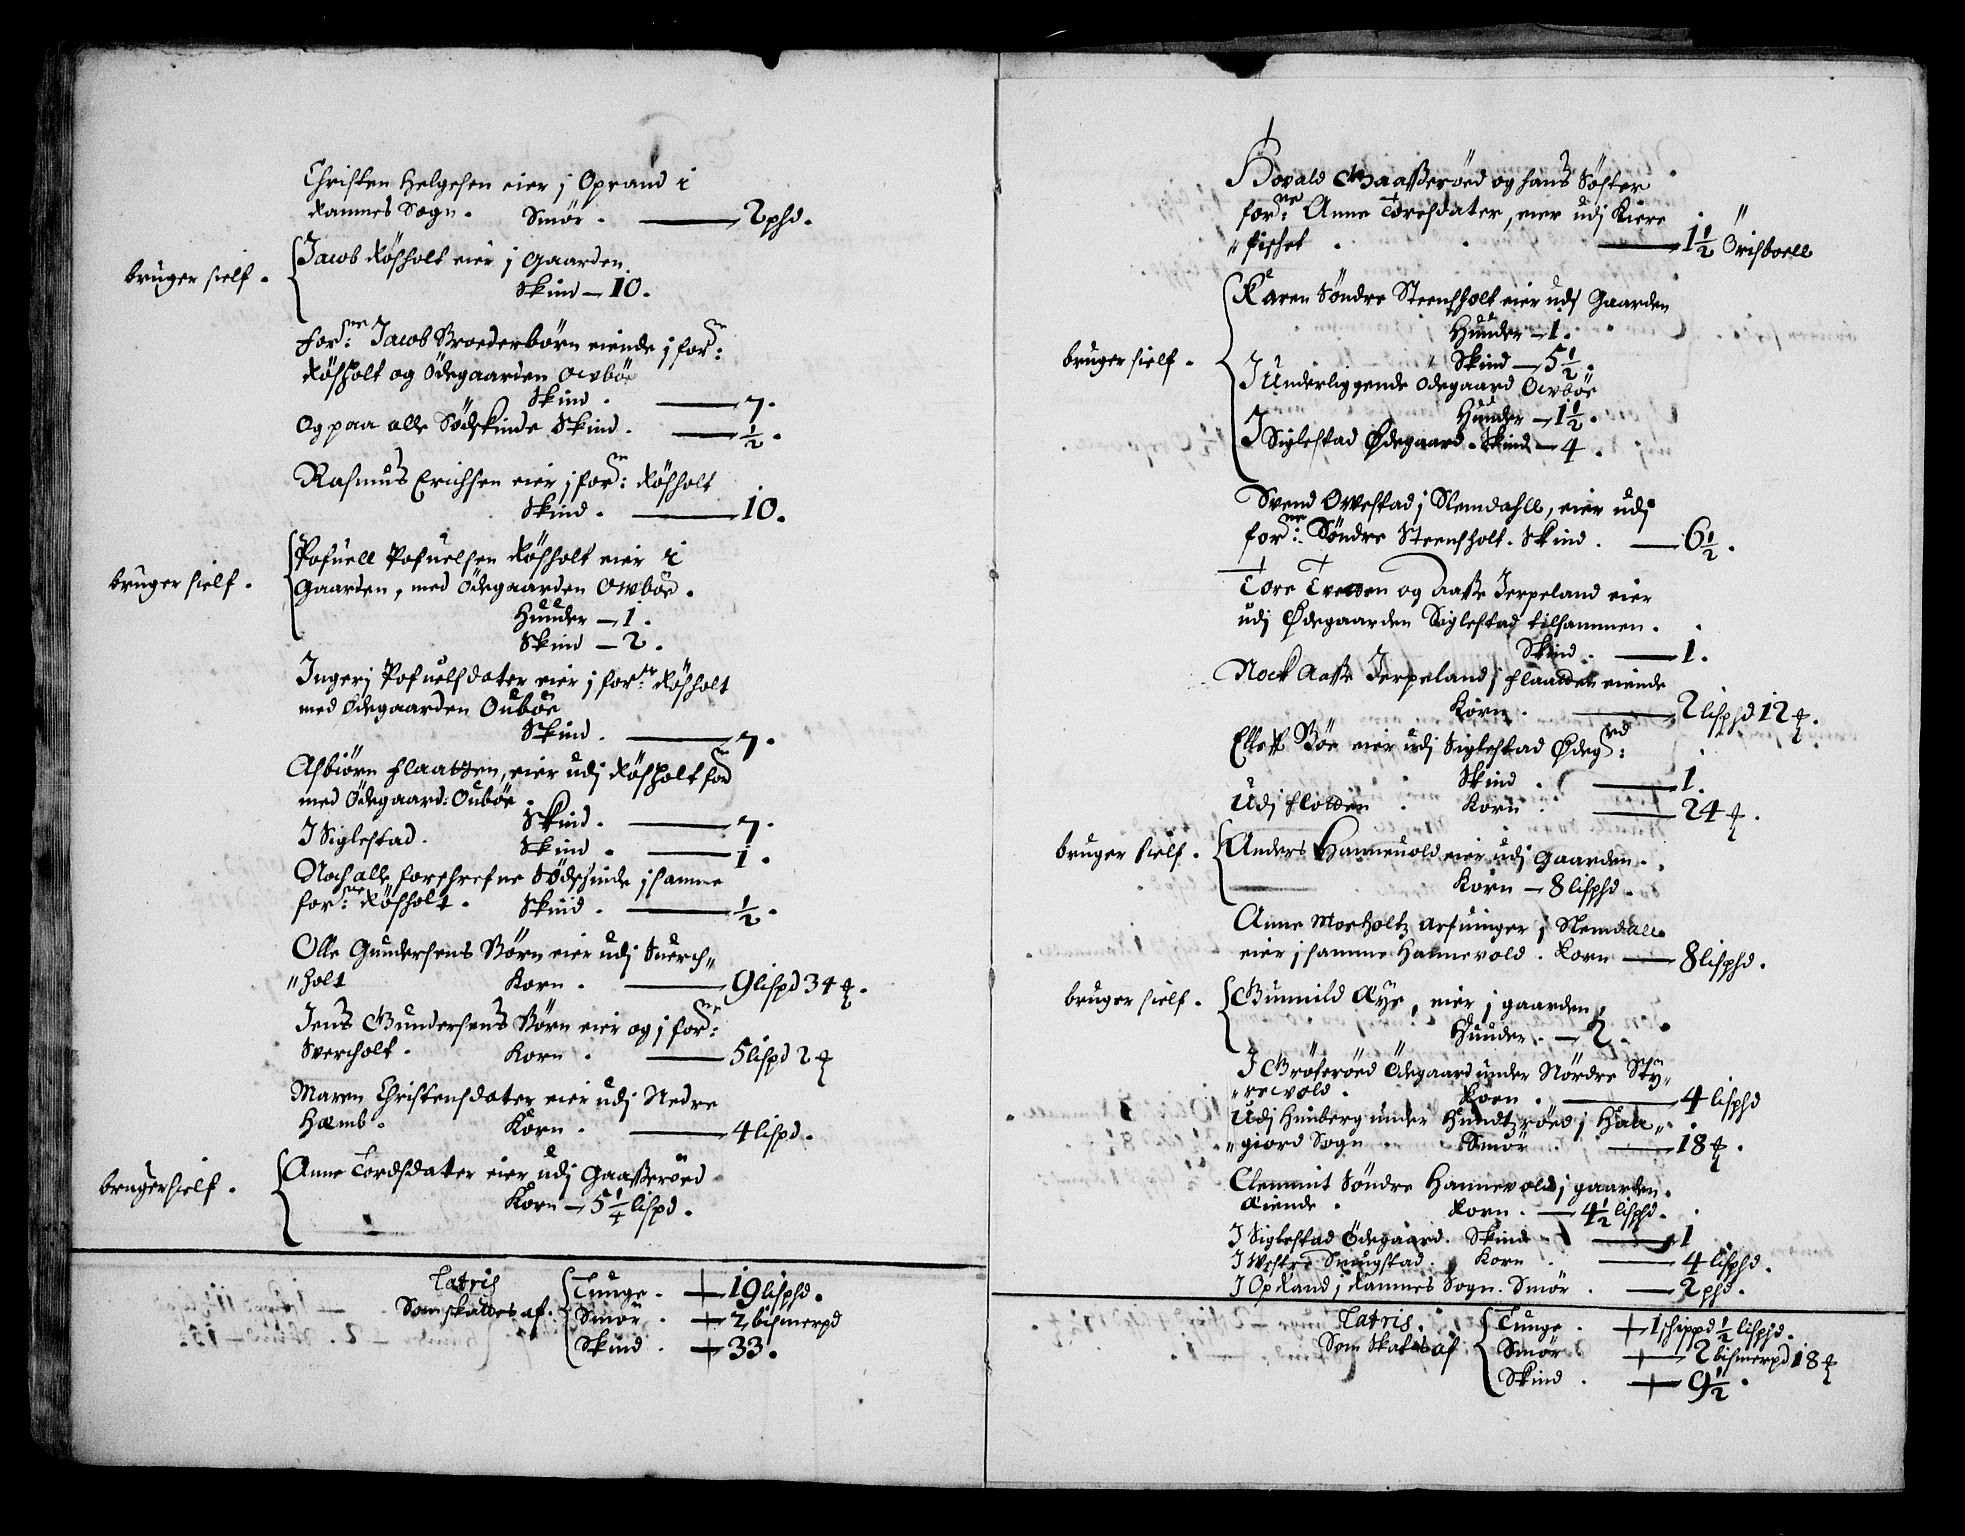 Christen Helgesen eier j Oprand i
Rannes Sogn. Smör. — 2 phd.
bruger sielf. Jacob Røsholt eier j Gaarden.
Skind — 10.
forne: Jacob Broederbørn eiende j forne:
Røsholt og Ödegaarden Owböe
Skind. — 7.
Og paa alle Södskinde Skind. — ½.
Rasmus Erichsen eier j forne: Røsholt
Skind. — 10.
bruger sielf. Pofuell Pofuelsen Røsholt eier i
Gaarden, med Ödegaarden Owböe.
Huuder — 1.
Skind — 2.
Ingerj Pofuelsdater eier j forne: Røsholt
med Ödegaarden Ouböe
Skind. — 7.
Asbiörn Flaatten, eier udj Røsholt forne
med Ödegaard: Ouböe.
Skind. — 7.
J Siglestad. Skind. — 1.
Noch alle forschrefne Södschinde j samme
forne: Røsholt. Skind. — ½.
Olle Gundersens Börn eier udj Suerch„
„holt Korn. — 9 lispd 34 ℔.
Jens Gundersens Börn eier og j forne:
Svercholt. Korn. — 5 lispd 2 ℔
Maren Christensdater eier udj Nedre
Hæmb. Korn. — 4 lispd.
bruger sielf. Anne Tordsdater eier udj Gaasseröed
Korn — 5¼ lispd.
Latris
Som skattes af. Tunge. — 19 lisphd.
Smör. — 2 bismerpd
Skind. — 33.
Hovald Gaasseröed og hans Söster
forne: Anne Toresdater, eier udj Kiere
„fischet. — 1½ Örisboell
Karen Söndre Steensholt eier udj Gaarden
Huuder — 1.
bruger sielf. Skind — 5½.
J Underliggende Ödegaard Owböe
Huuder — 1½.
J Siglestad Ødegaard. Skind — 4.
Svend Owestad j Slemdahll, eier udj
forne: Söndre Steensholt. Skind. — 6½.
Tore Tvetten og Aasse Jerpeland eier
udj Ødegaarden Siglestad tilsammen.
Skind. — 1.
Nock Aasse Jerpeland j Flaatten eiende
Korn. — 2 lisphd 12 ℔.
Elleff Böe eier udj Siglestad Ødegrd:
Skind. — 1.
Udj Flotten. Korn. — 24 ℔.
bruger sielf. Anders Hanneuold eier udj gaarden.
Korn — 8 lisphd.
Anne Moeholtz arfuinger j Slemdall
eier j samme Hannevold. Korn — 8 lisphd.
bruger sielf. Gunnild Aye, eier j gaarden,
Huuder. — 2.
J Gröteröed Ödegaard under Nördre Sty„
„revold. Korn. — 4 lisphd
Udj Himberg under Hundtzröed j Hall„
„giord Sogn. Smör. — 18 ℔.
Clemmit Söndre Hannevold j gaarden.
Eiende. Korn. — 4½ lisphd.
J Siglestad Ödegaard. Skind — 1
J Westre Snougstad. Korn — 4 lisphd.
J Oprand j Rannes Sogn. Smör. — 2 phd.
Latris.
Som Skates af Tunge. — 1 schippd ½ lisphd.
Smör. — 2 bismerpd 18 ℔
Skind. — 9½.